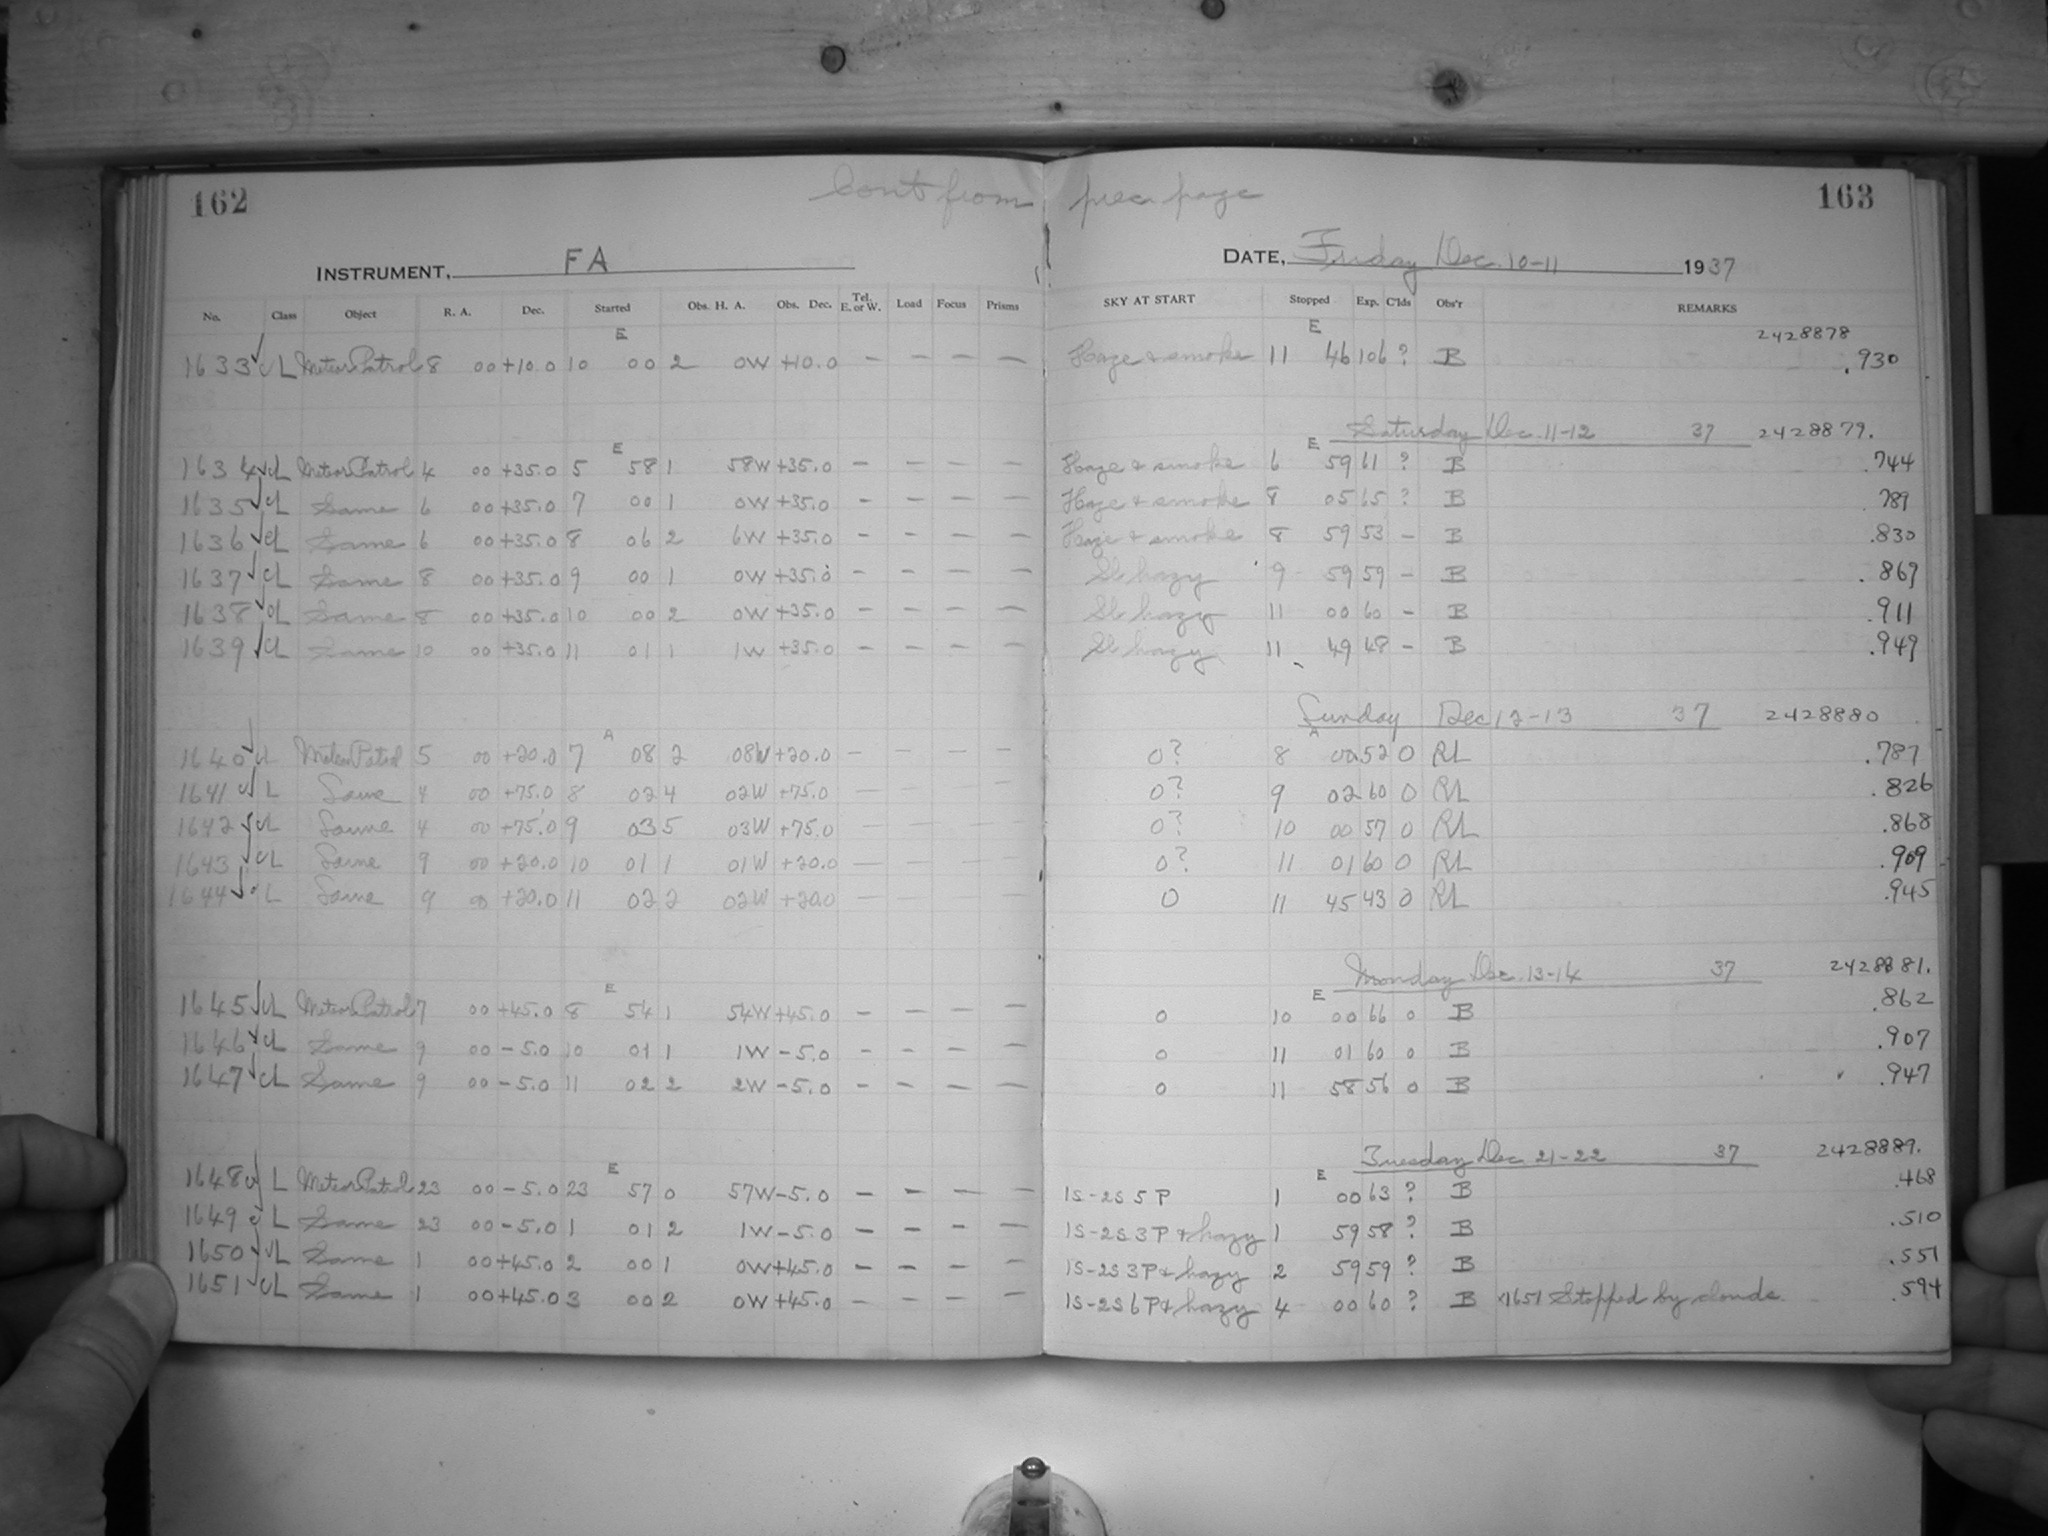 162 Cont from prec page 163
INSTRUMENT, FA DATE, Friday Dec. 10-11 1937
No. Class Object R. A. Dec. Started Obs. H. A. Obs. Dec. Tel. E. or W. Load Focus Prisms SKY AT START Stopped Exp. C'lds Obs'r REMARKS
E E 2428878
1633 L Meteor Patrol 8 00 +10.0 10 00 2 0W +10.0 — — — — Haze & smoke 11 46 106 ? B .930
Saturday Dec. 11-12 37 2428879.
E E
1634 L Meteor Patrol 4 00 +35.0 5 58 1 58W +35.0 — — — — Haze & smoke 6 59 61 ? B .744
1635 L Same 6 00 +35.0 7 00 1 0W +35.0 — — — — Haze & smoke 8 05 65 ? B .789
1636 L Same 6 00 +35.0 8 06 2 6W +35.0 — — — — Haze & smoke 8 59 53 — B .830
1637 L Same 8 00 +35.0 9 00 1 0W +35.0 — — — — Sl hazy 9 59 59 — B .869
1638 L Same 8 00 +35.0 10 00 2 0W +35.0 — — — — Sl hazy 11 00 60 — B .911
1639 L Same 10 00 +35.0 11 01 1 1W +35.0 — — — — Sl hazy 11 49 48 — B .949
Sunday Dec 12-13 37 2428880
A A
1640 L Meteor Patrol 5 00 +20.0 7 08 2 08W +20.0 — — — — 0? 8 00 52 0 RL .787
1641 L Same 4 00 +75.0 8 02 4 02W +75.0 — — — — 0? 9 02 60 0 RL .826
1642 L Same 4 00 +75.0 9 03 5 03W +75.0 — — — — 0? 10 00 57 0 RL .868
1643 L Same 9 00 +20.0 10 01 1 01W +20.0 — — — — 0? 11 01 60 0 RL .909
1644 L Same 9 00 +20.0 11 02 2 02W +20.0 — — — — 0 11 45 43 0 RL .945
Monday Dec. 13-14 37 2428881.
E E
1645 L Meteor Patrol 7 00 +45.0 8 54 1 54W +45.0 — — — — 0 10 00 66 0 B .862
1646 L Same 9 00 -5.0 10 01 1 1W -5.0 — — — — 0 11 01 60 0 B .907
1647 L Same 9 00 -5.0 11 02 2 2W -5.0 — — — — 0 11 58 56 0 B .947
Tuesday Dec 21-22 37 2428889.
E E
1648 L Meteor Patrol 23 00 -5.0 23 57 0 57W -5.0 — — — — 1S-2S 5P 1 00 63 ? B .468
1649 L Same 23 00 -5.0 1 01 2 1W -5.0 — — — — 1S-2S 3P & hazy 1 59 58 ? B .510
1650 L Same 1 00 +45.0 2 00 1 0W +45.0 — — — — 1S-2S 3P & hazy 2 59 59 ? B .551
1651 L Same 1 00 +45.0 3 00 2 0W +45.0 — — — — 1S-2S 6P & hazy 4 00 60 ? B 1651 Stopped by clouds .594